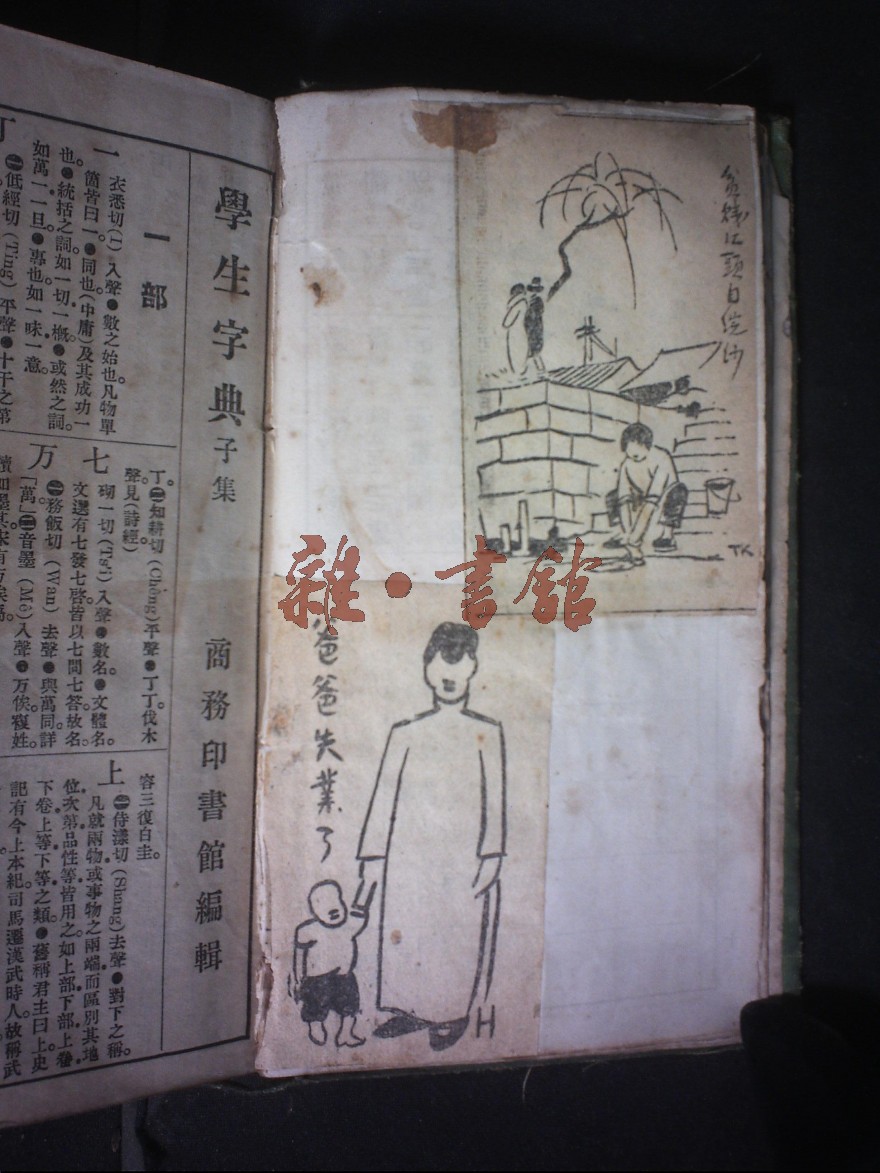 學生字典 子集
商務印書館編輯
一部
一
衣悉切(I)入聲●數之始也。凡物單
箇皆曰一●同也(中庸)及其成功一
也●統括之詞如一切一概●或然之詞。
如萬一一旦●專也如一味一意。
丁
㊀低經切(Ting)平聲●十干之第
丁。㊁知耕切(Chêng)平聲●丁丁伐木
聲見(詩經)
七
砌一切(Ts'i)入聲●數名●文體名
文選有七發七啓皆以七問七答故名。
万
㊀務飯切(Wan)去聲●與萬同詳
「萬」㊁音墨(Mê)入聲●万俟複姓。
讀如墨其
容三復白圭。
上
㊀侍漾切(Shang)去聲●對下之稱。
凡就兩物或事物之兩端而區別其地
位次第品性等皆用之如上部下部上卷
下卷上等下等之類●舊稱君主曰上史
記有今上本紀司馬遷漢武時人故稱武
頭白浣沙
TK
雜·書館
爸爸失業了
H